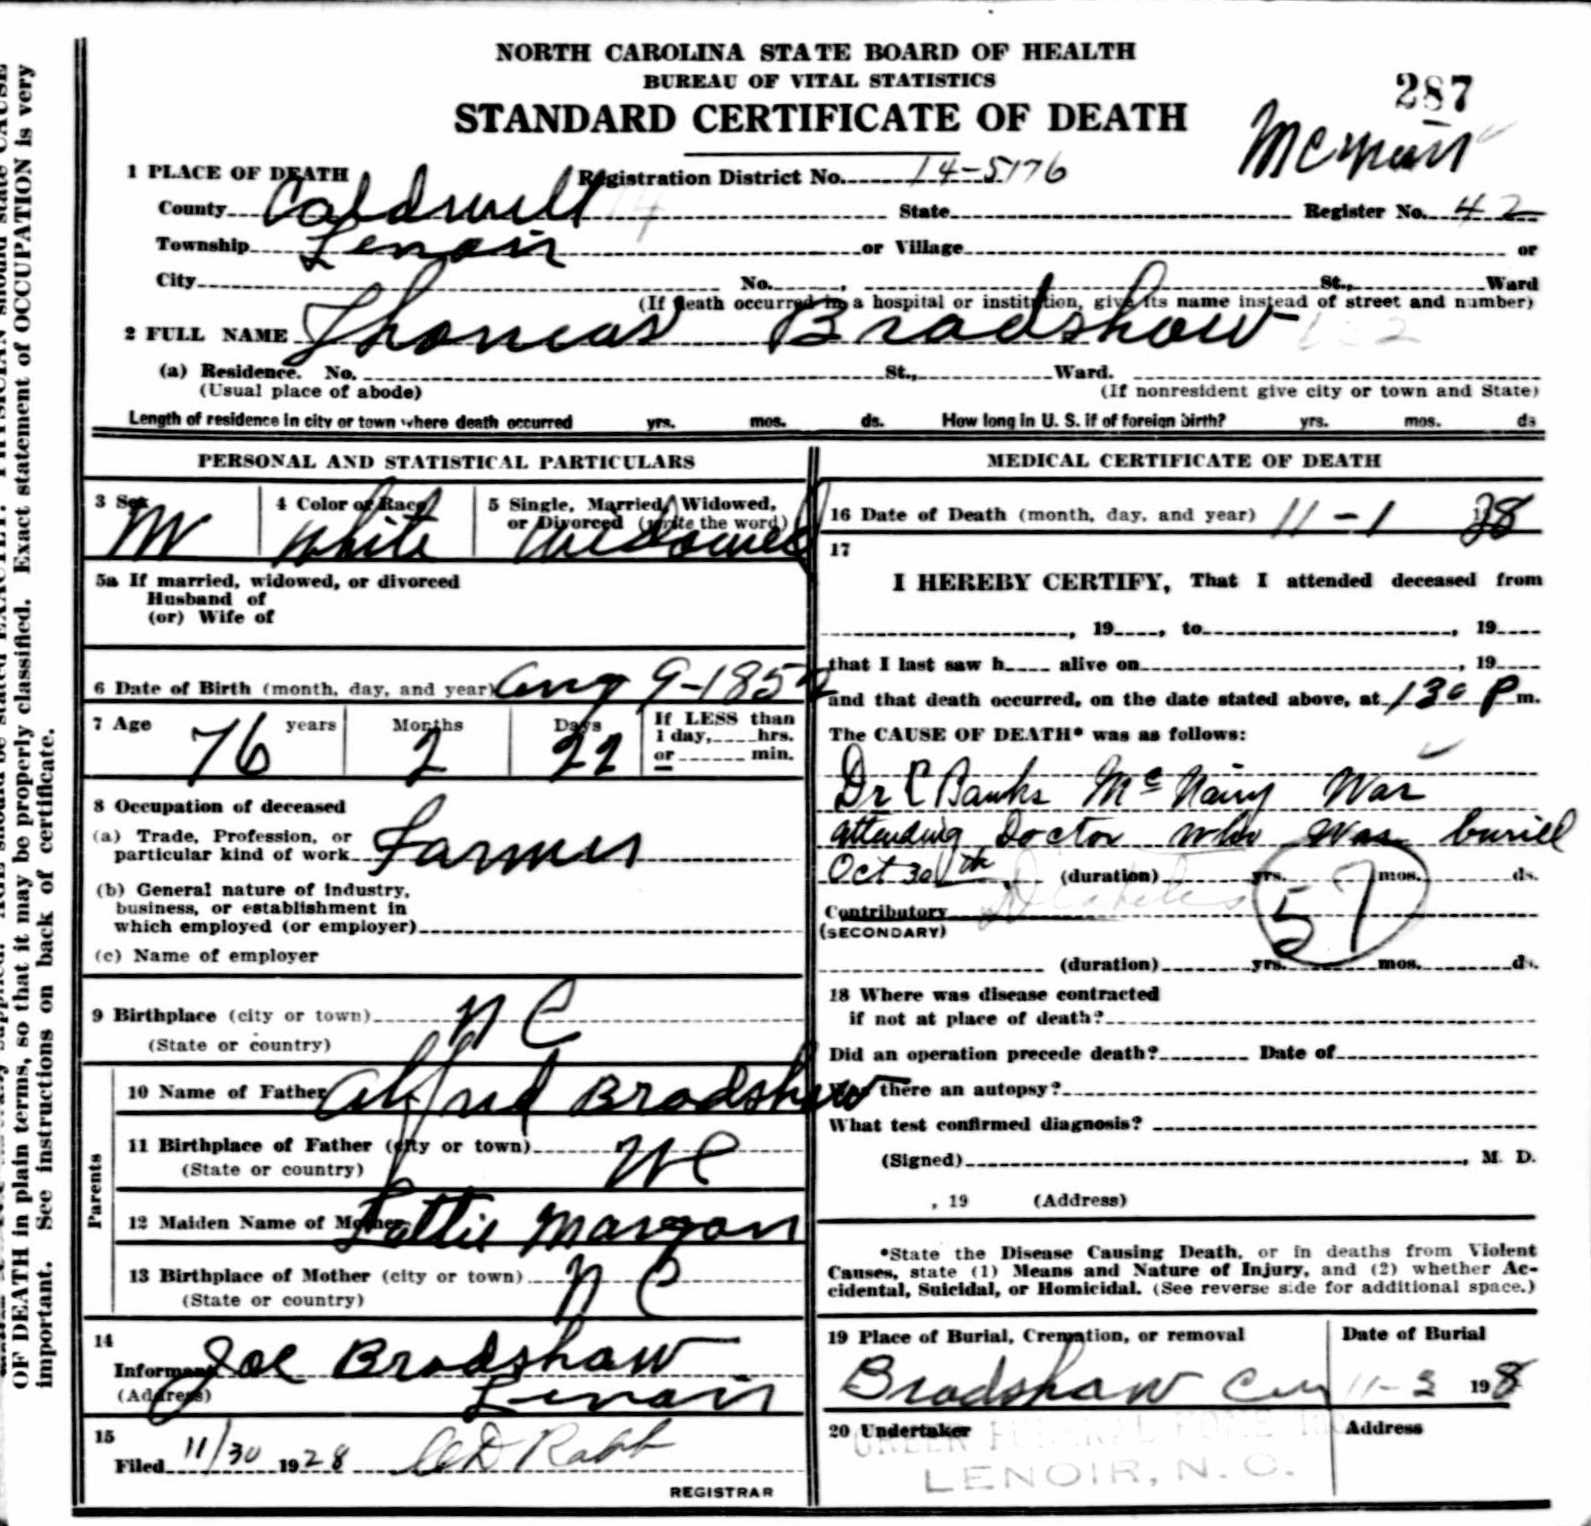 OF DEATH in plain terms, so that it may be properly classified. Exact statement of OCCUPATION is very
important. See instructions on back of certificate.
NORTH CAROLINA STATE BOARD OF HEALTH
BUREAU OF VITAL STATISTICS
STANDARD CERTIFICATE OF DEATH
287
1 PLACE OF DEATH Registration District No. 14-5176
County Caldwell State Register No. 42
Township Lenoir or Village or
City No. , St., Ward
(If death occurred in a hospital or institution, give its name instead of street and number)
2 FULL NAME Thomas Bradshaw
(a) Residence. No. St., Ward.
(Usual place of abode) (If nonresident give city or town and State)
Length of residence in city or town where death occurred yrs. mos. ds. How long in U. S. if of foreign birth? yrs. mos. ds
PERSONAL AND STATISTICAL PARTICULARS
3 Sex 4 Color or Race 5 Single, Married, Widowed,
or Divorced (write the word)
M White Widowed
5a If married, widowed, or divorced
Husband of
(or) Wife of
6 Date of Birth (month, day, and year) Aug 9-1852
7 Age 76 years Months 2 Days 22 If LESS than
1 day, hrs.
or min.
8 Occupation of deceased
(a) Trade, Profession, or
particular kind of work Farmer
(b) General nature of industry,
business, or establishment in
which employed (or employer)
(c) Name of employer
9 Birthplace (city or town) N C
(State or country)
Parents
10 Name of Father Alfred Bradshaw
11 Birthplace of Father (city or town) N C
(State or country)
12 Maiden Name of Mother Lottie Morgan
13 Birthplace of Mother (city or town) N C
(State or country)
14
Informant Joe Bradshaw
(Address) Lenoir
15
Filed 11/30 1928 Rabb
REGISTRAR
MEDICAL CERTIFICATE OF DEATH
16 Date of Death (month, day, and year) 11-1 28
17
I HEREBY CERTIFY, That I attended deceased from
, 19 , to , 19
that I last saw h alive on , 19
and that death occurred, on the date stated above, at 130 P m.
The CAUSE OF DEATH* was as follows:
Dr C Banks McNairy Was
attending Doctor who was buried
Oct 30th (duration) yrs. mos. ds.
Contributory Diabetes 57
(SECONDARY)
(duration) yrs. mos. ds.
18 Where was disease contracted
if not at place of death?
Did an operation precede death? Date of
Was there an autopsy?
What test confirmed diagnosis?
(Signed) , M. D.
, 19 (Address)
*State the Disease Causing Death, or in deaths from Violent
Causes, state (1) Means and Nature of Injury, and (2) whether Ac-
cidental, Suicidal, or Homicidal. (See reverse side for additional space.)
19 Place of Burial, Cremation, or removal Date of Burial
Bradshaw Cem 11-3 198
20 Undertaker Address
GREER FUNERAL HOME
LENOIR, N. C.